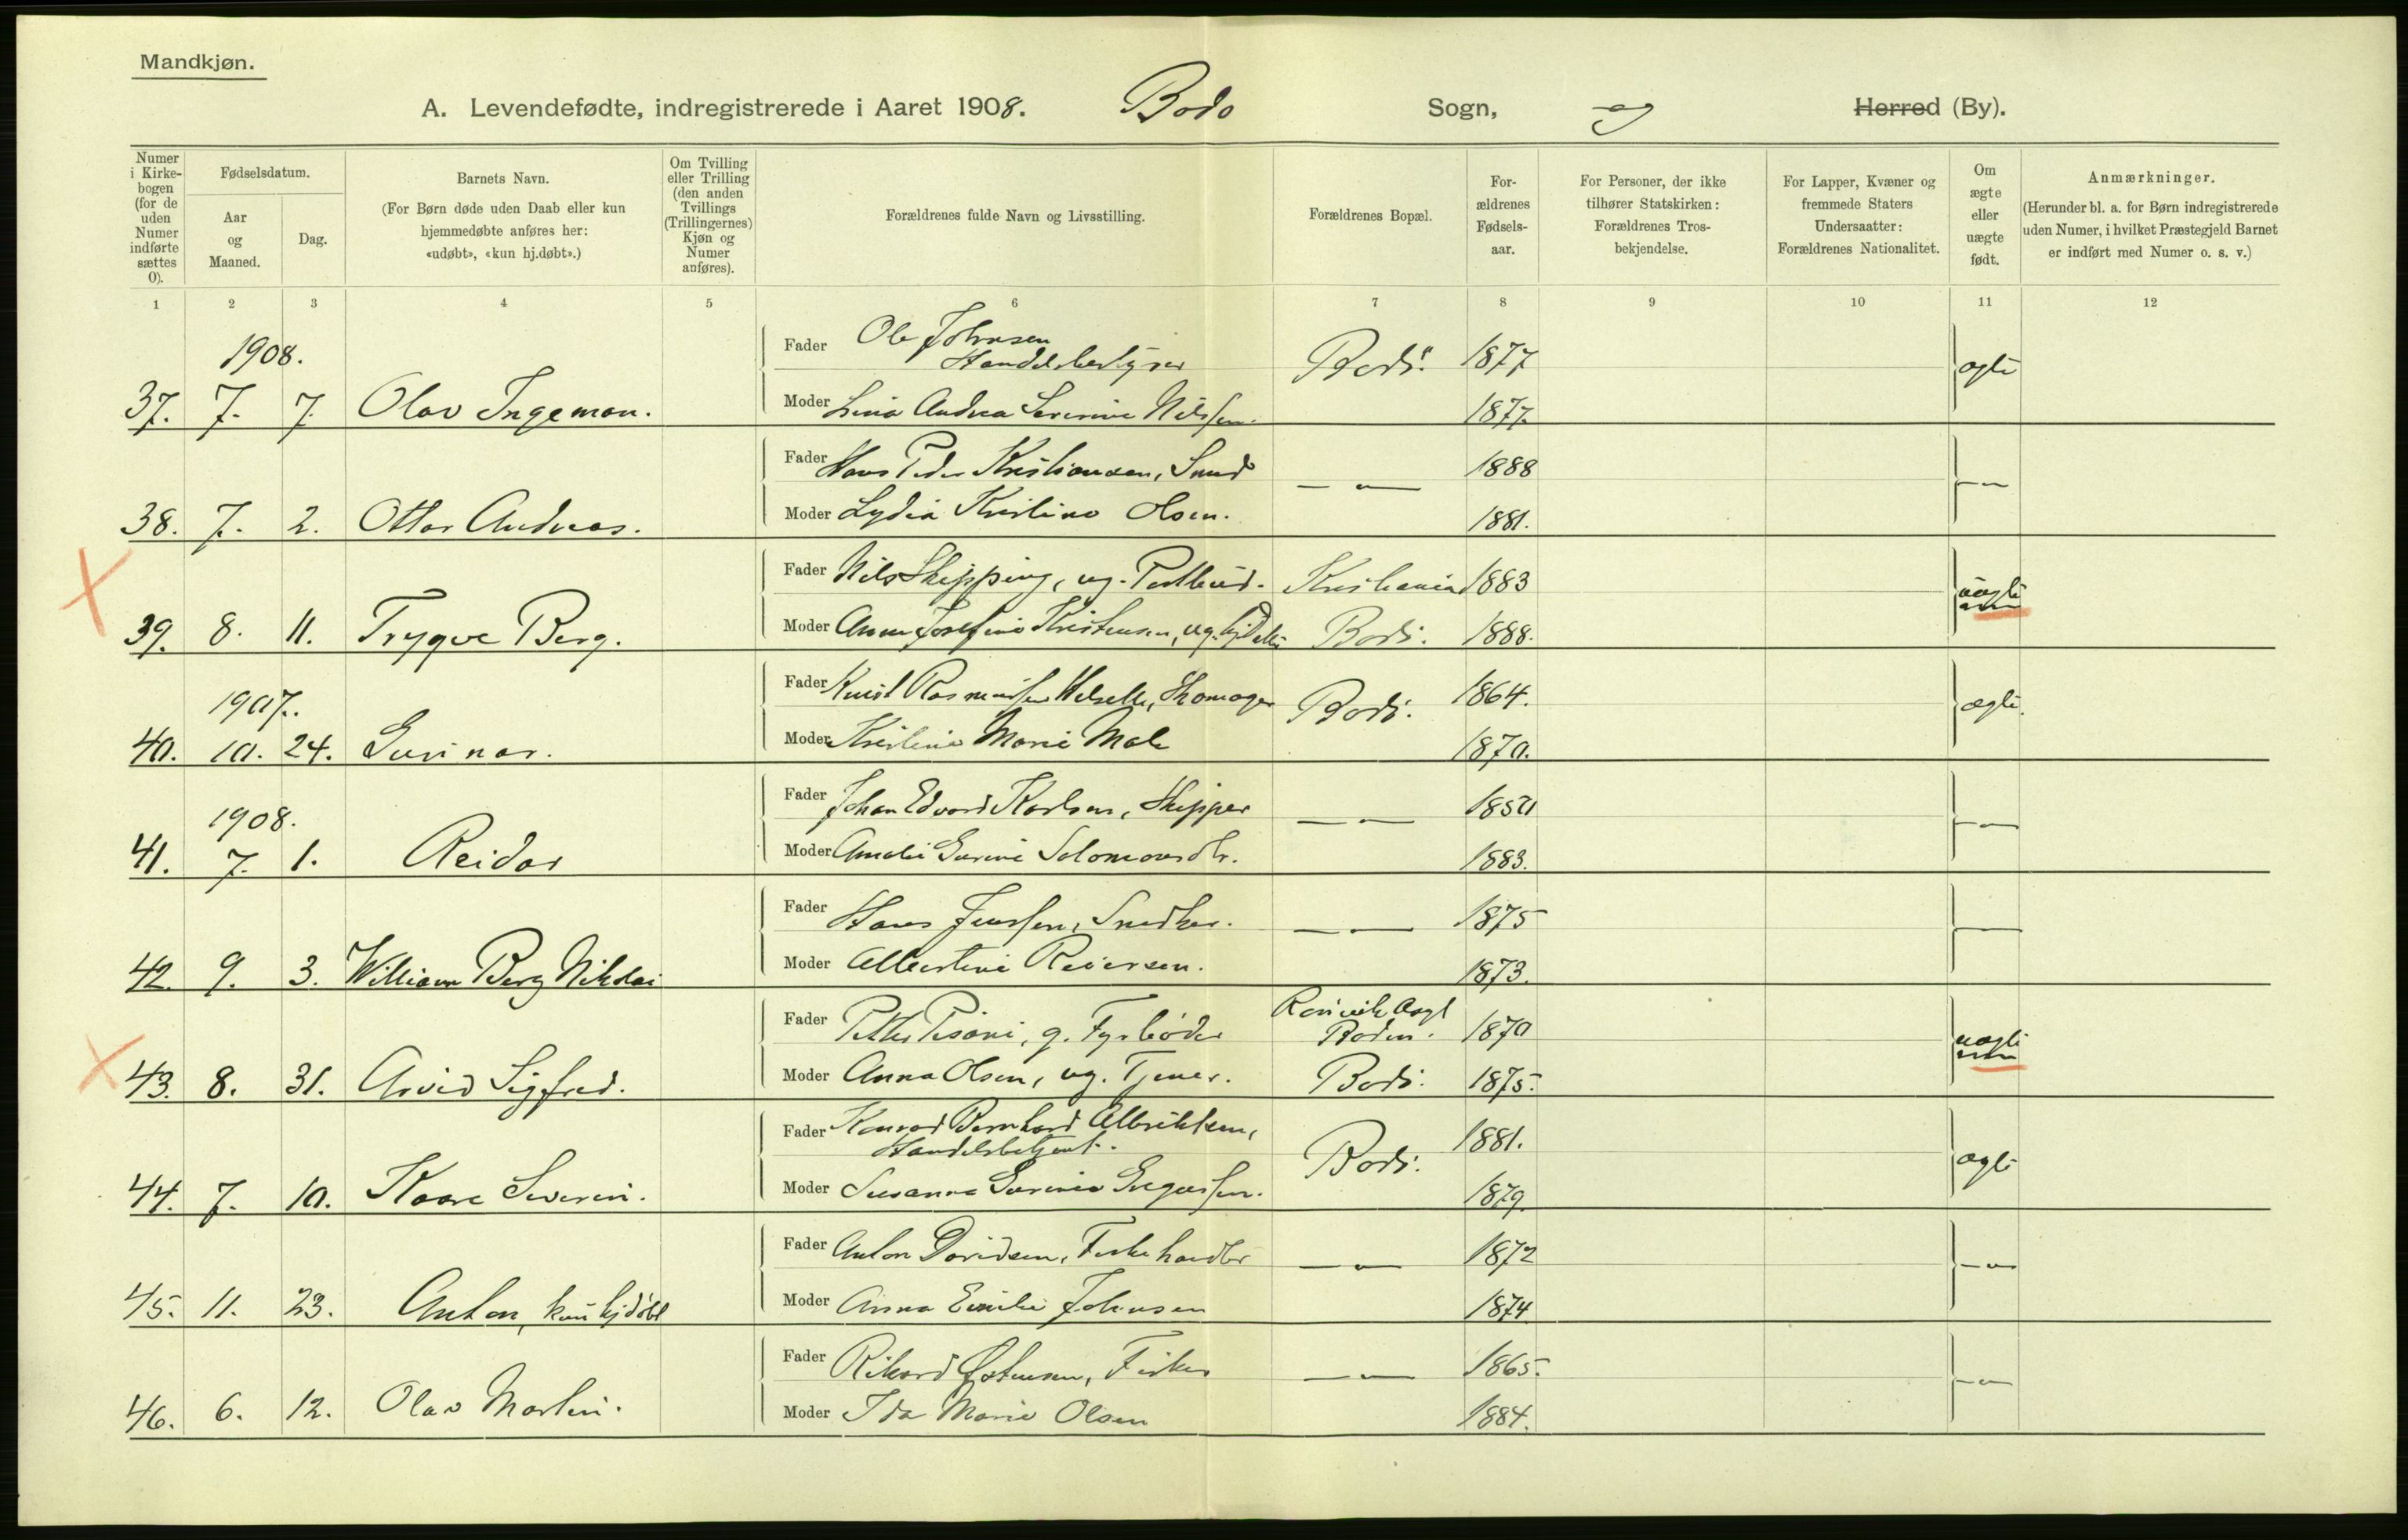 Mandkjøn.
A. Levendefødte, indregistrerede i Aaret 1908. Bodø Sogn, og Herred (By).
Numer i Kirkebogen (for de uden Numer indførte sættes 0).
Fødselsdatum.
Aar og Maaned.
Dag.
Barnets Navn.
(For Børn døde uden Daab eller kun
hjemmedøbte anføres her:
«udøbt», «kun hj.døbt».)
Om Tvilling
eller Trilling
(den anden
Tvillings
(Trillingernes)
Kjøn og
Numer
anføres).
Forældrenes fulde Navn og Livsstilling.
Forældrenes Bopæl.
For-
ældrenes
Fødsels-
aar.
For Personer, der ikke
tilhører Statskirken:
Forældrenes Tros-
bekjendelse.
For Lapper, Kvæner og
fremmede Staters
Undersaatter:
Forældrenes Nationalitet.
Om
ægte
eller
uægte
født.
Anmærkninger.
(Herunder bl. a. for Børn indregistrerede
uden Numer, i hvilket Præstegjeld Barnet
er indført med Numer o. s. v.)
1 2 3 4 5 6 7 8 9 10 11 12
1908.
Fader Ole Johnsen
Handelsbestyrer Bodø. 1877 ægte
37. 7. 7. Olav Ingeman. Moder Andrea Severine Nilssen. 1877.
Fader Hans Peder Kristiansen, Smed — 1888 —
38. 7. 2. Ottar Andreas. Moder Lydia Kristine Olsen. 1881.
Fader Nils Skipping, ug. Postbud. Kristiania 1883 uægte
39. 8. 11. Trygve Berg. Moder Anna Josefine Kristensen, ug. Bodø. 1888.
1907.
Fader Knut Rasmussen Skomager Bodø. 1864. ægte.
40. 10. 24. Gunnar. Moder Kristine Marie 1870.
1908.
Fader Johan Edvard Karlsen, Skipper — 1850 —
41. 7. 1. Reidar Moder Amalie Gurine Salomonsdtr. 1883.
Fader Hans Jenssen, Snedker. — 1875 —
42. 9. 3. William Berg Nikolai Moder Albertine Reiersen. 1873.
Fader Petter g. Fyrbøder Boden. 1870 uægte
43. 8. 31. Arvid Sigfred. Moder Anna Olsen, ug. Tjener. Bodø. 1875.
Fader Konrad Bernhard Albriktsen,
Handelsbetjent. Bodø. 1881. ægte
44. 7. 10. Kaare Severin. Moder Susanna Gurine Gregussen. 1879.
Fader Anton Davidsen, Fiskehandler — 1872 —
45. 11. 23. Anton, kun hj.døbt Moder Anna Emilie Johnsen 1874.
Fader Rikard Fisker — 1865. —
46. 6. 12. Olav Martin. Moder Ida Marie Olsen 1884.